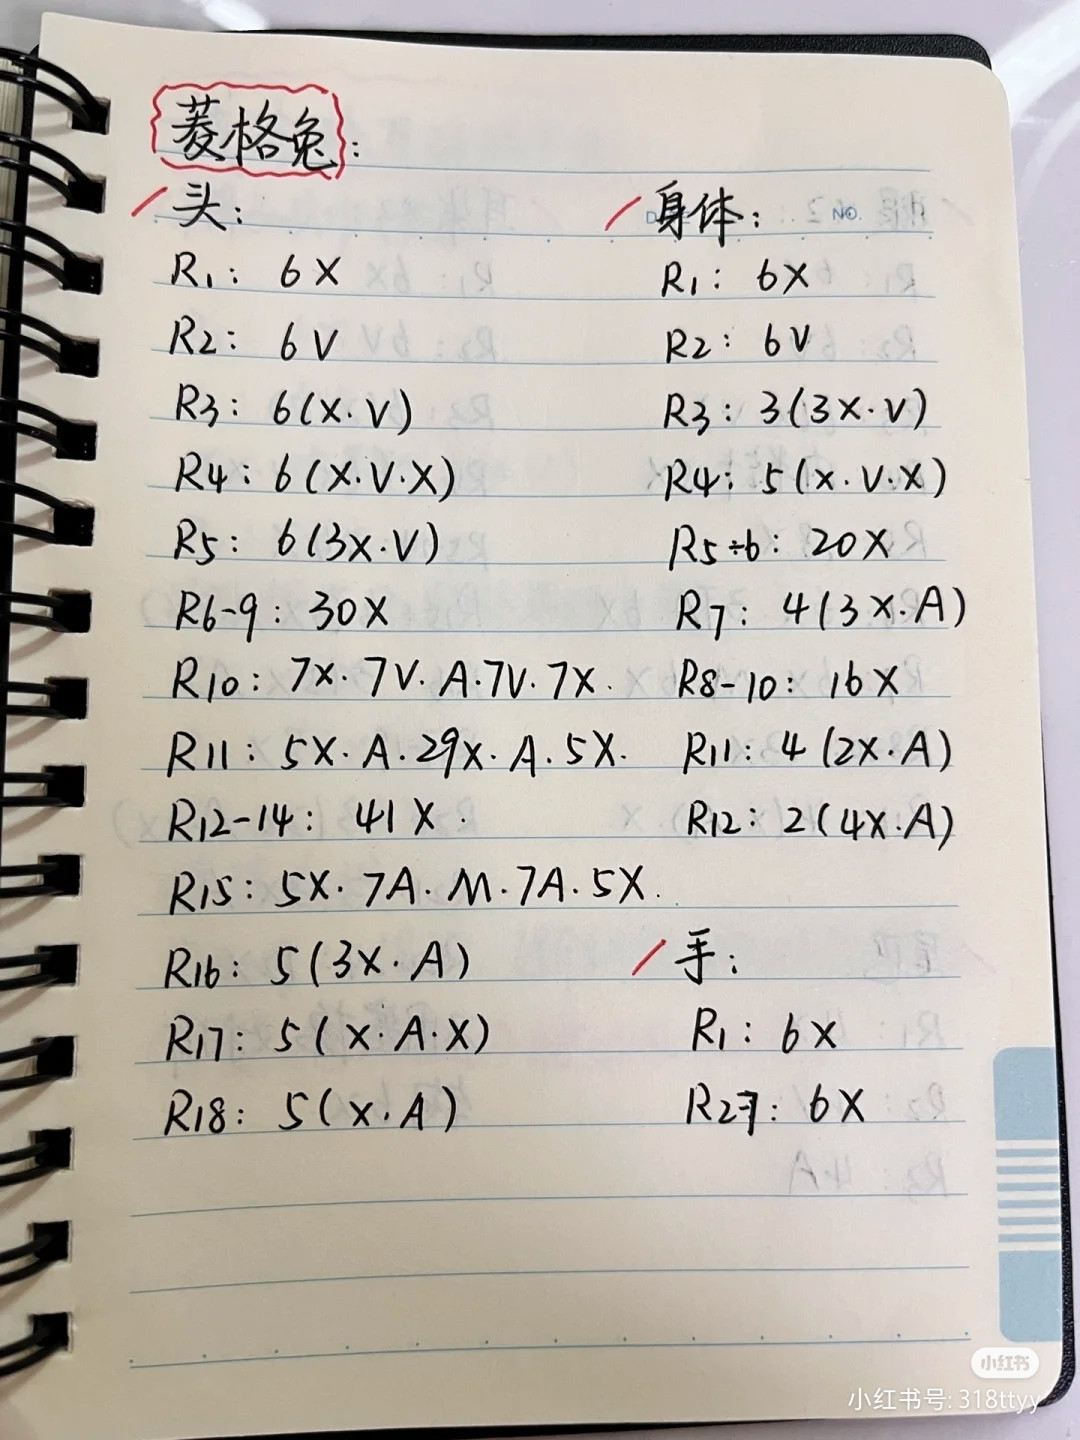 菱格兔:
头:
R1: 6X
R2: 6V
R3: 6(X·V)
R4: 6(X·V·X)
R5: 6(3X·V)
R6-9: 30X
R10: 7X·7V·A·7V·7X.
R11: 5X·A·29X·A·5X.
R12-14: 41X.
R15: 5X·7A·M·7A·5X.
R16: 5(3X·A)
R17: 5(X·A·X)
R18: 5(X·A)
身体:
NO.
R1: 6X
R2: 6V
R3: 3(3X·V)
R4: 5(X·V·X)
R5-6: 20X
R7: 4(3X·A)
R8-10: 16X
R11: 4(2X·A)
R12: 2(4X·A)
手:
R1: 6X
R2-7: 6X
小红书
小红书号: 318ttyy